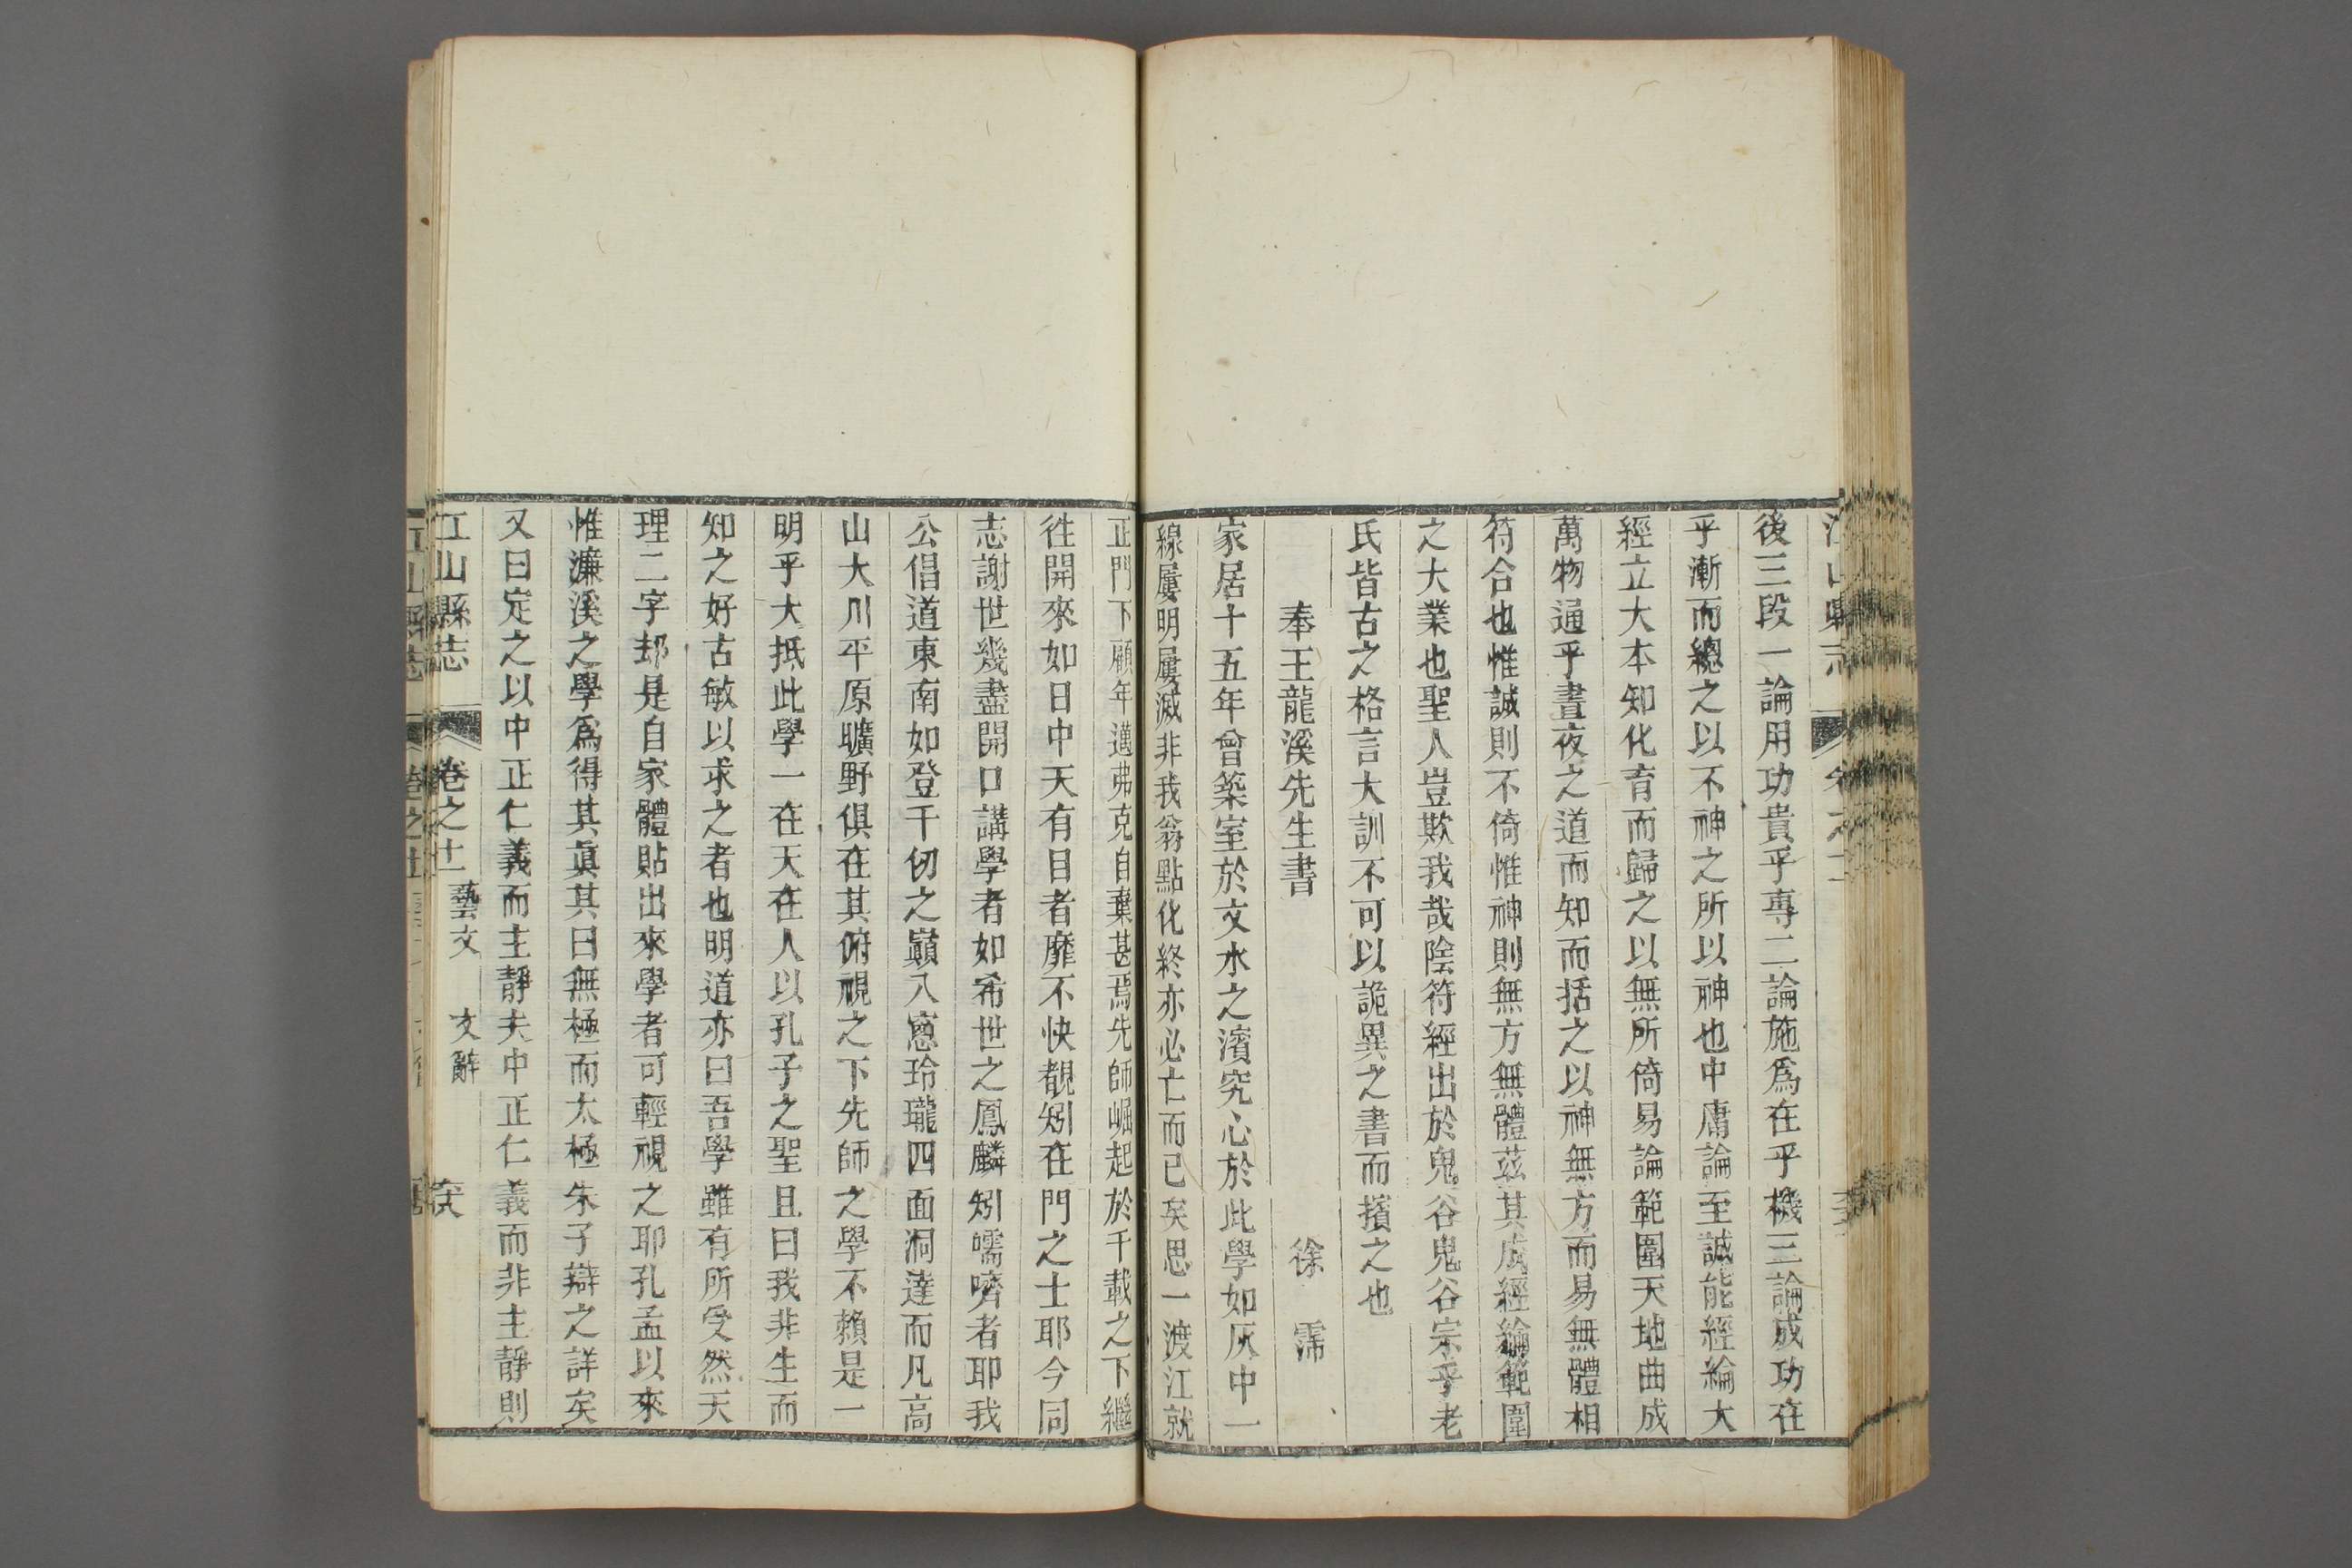 後三段一論用功貴乎專二論施爲在乎機三論成功在
乎漸而總之以不神之所以神也中庸論至誠能經綸大
經立大本知化育而歸之以無所倚易論範圍天地曲成
萬物通乎晝夜之道而知而括之以神無方而易無體相
符合也惟誠則不倚惟神則無方無體茲其成經綸範圍
之大業也聖人豈欺我哉陰符經出於鬼谷鬼谷宗乎老
氏皆古之格言大訓不可以詭異之書而擯之也
奉王龍溪先生書 徐霈
家居十五年曾築室於文水之濱究心於此學如灰中一
線屢明屢滅非我翁點化終亦必亡而已矣思一渡江就
正門下顧年邁弗克自棄甚焉先師崛起於千載之下繼
往開來如日中天有目者靡不快覩矧在門之士耶今同
志謝世幾盡開口講學者如希世之鳳麟矧嚅嚌者耶我
公倡道東南如登千仞之巔八窻玲瓏四面洞達而凡高
山大川平原曠野俱在其俯視之下先師之學不賴是一
明乎大抵此學一在天在人以孔子之聖且曰我非生而
知之好古敏以求之者也明道亦曰吾學雖有所受然天
理二字却是自家體貼出來學者可輕視之耶孔孟以來
惟濂溪之學爲得其眞其曰無極而太極朱子辯之詳矣
又曰定之以中正仁義而主靜夫中正仁義而非主靜則
江山縣志 卷之十一 藝文 文辭